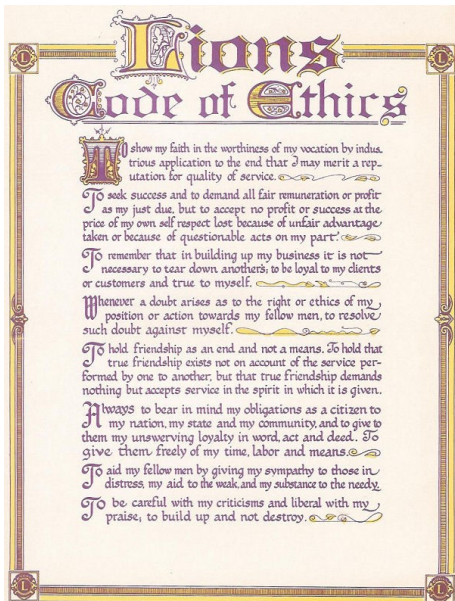 Lions
Code of Ethics
To show my faith in the worthiness of my vocation by indus
trious application to the end that I may merit a rep-
utation for quality of service.
To seek success and to demand all fair remuneration or profit
as my just due, but to accept no profit or success at the
price of my own self respect lost because of unfair advantage
taken or because of questionable acts on my part.
To remember that in building up my business it is not
necessary to tear down another's; to be loyal to my clients
or customers and true to myself.
Whenever a doubt arises as to the right or ethics of my
position or action towards my fellow men, to resolve
such doubt against myself.
To hold friendship as an end and not a means. To hold that
true friendship exists not on account of the service per-
formed by one to another, but that true friendship demands
nothing but accepts service in the spirit in which it is given.
Always to bear in mind my obligations as a citizen to
my nation, my state and my community, and to give to
them my unswerving loyalty in word, act and deed. To
give them freely of my time, labor and means.
To aid my fellow men by giving my sympathy to those in
distress, my aid to the weak, and my substance to the needy.
To be careful with my criticisms and liberal with my
praise; to build up and not destroy.